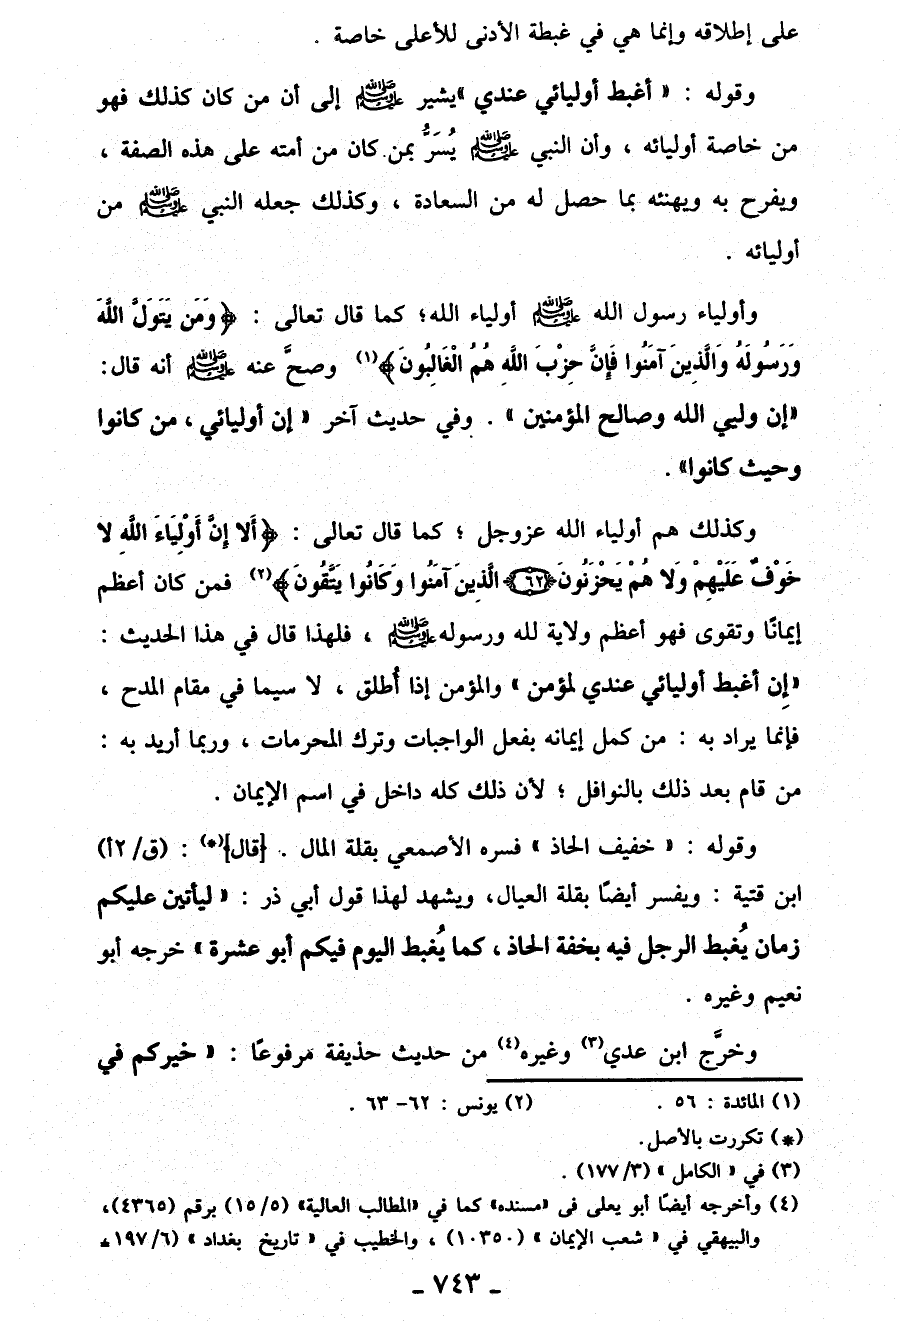 على إطلاقه وإنما هي في غبطة الأدنى للأعلى خاصة .
وقوله : « أغبط أوليائي عندي » يشير ﷺ إلى أن من كان كذلك فهو
من خاصة أوليائه ، وأن النبي ﷺ يُسَرُّ بمن كان من أمته على هذه الصفة ،
ويفرح به ويهنئه بما حصل له من السعادة ، وكذلك جعله النبي ﷺ من
أوليائه .
وأولياء رسول الله ﷺ أولياء الله؛ كما قال تعالى : ﴿وَمَن يَتَوَلَّ اللَّهَ
وَرَسُولَهُ وَالَّذِينَ آمَنُوا فَإِنَّ حِزْبَ اللَّهِ هُمُ الْغَالِبُونَ﴾(١) وصحَّ عنه ﷺ أنه قال:
«إن وليي الله وصالح المؤمنين» . وفي حديث آخر « إن أوليائي ، من كانوا
وحيث كانوا» .
وكذلك هم أولياء الله عزوجل ؛ كما قال تعالى : ﴿أَلا إِنَّ أَوْلِيَاءَ اللَّهِ لا
خَوْفٌ عَلَيْهِمْ وَلا هُمْ يَحْزَنُونَ﴿٦٢﴾ الَّذِينَ آمَنُوا وَكَانُوا يَتَّقُونَ﴾(٢) فمن كان أعظم
إيمانًا وتقوى فهو أعظم ولاية لله ورسوله ﷺ ، فلهذا قال في هذا الحديث :
«إِن أغبط أوليائي عندي لمؤمن » والمؤمن إذا أُطلق ، لا سيما في مقام المدح ،
فإنما يراد به : من كمل إيمانه بفعل الواجبات وترك المحرمات ، وربما أريد به :
من قام بعد ذلك بالنوافل ؛ لأن ذلك كله داخل في اسم الإيمان .
وقوله : « خفيف الحاذ » فسره الأصمعي بقلة المال . [قال](*) : (ق/٢أ)
ابن قتية : ويفسر أيضًا بقلة العيال، ويشهد لهذا قول أبي ذر : « ليأتين عليكم
زمان يُغبط الرجل فيه بخفة الحاذ ، كما يُغبط اليوم فيكم أبو عشرة » خرجه أبو
نعيم وغيره .
وخرَّج ابن عدي(٣) وغيره(٤) من حديث حذيفة مرفوعًا : « خيركم في
(١) المائدة : ٥٦ . (٢) يونس : ٦٢- ٦٣ .
(*) تكررت بالأصل.
(٣) في « الكامل » (١٧٧/٣) .
(٤) وأخرجه أيضًا أبو يعلى فى «مسنده» كما في «المطالب العالية» (١٥/٥) برقم (٤٣٦٥)،
والبيهقي في « شعب الإيمان » (١٠٣٥٠) ، والخطيب في « تاريخ بغداد » (١٩٧/٦ =
ـ ٧٤٣ ـ